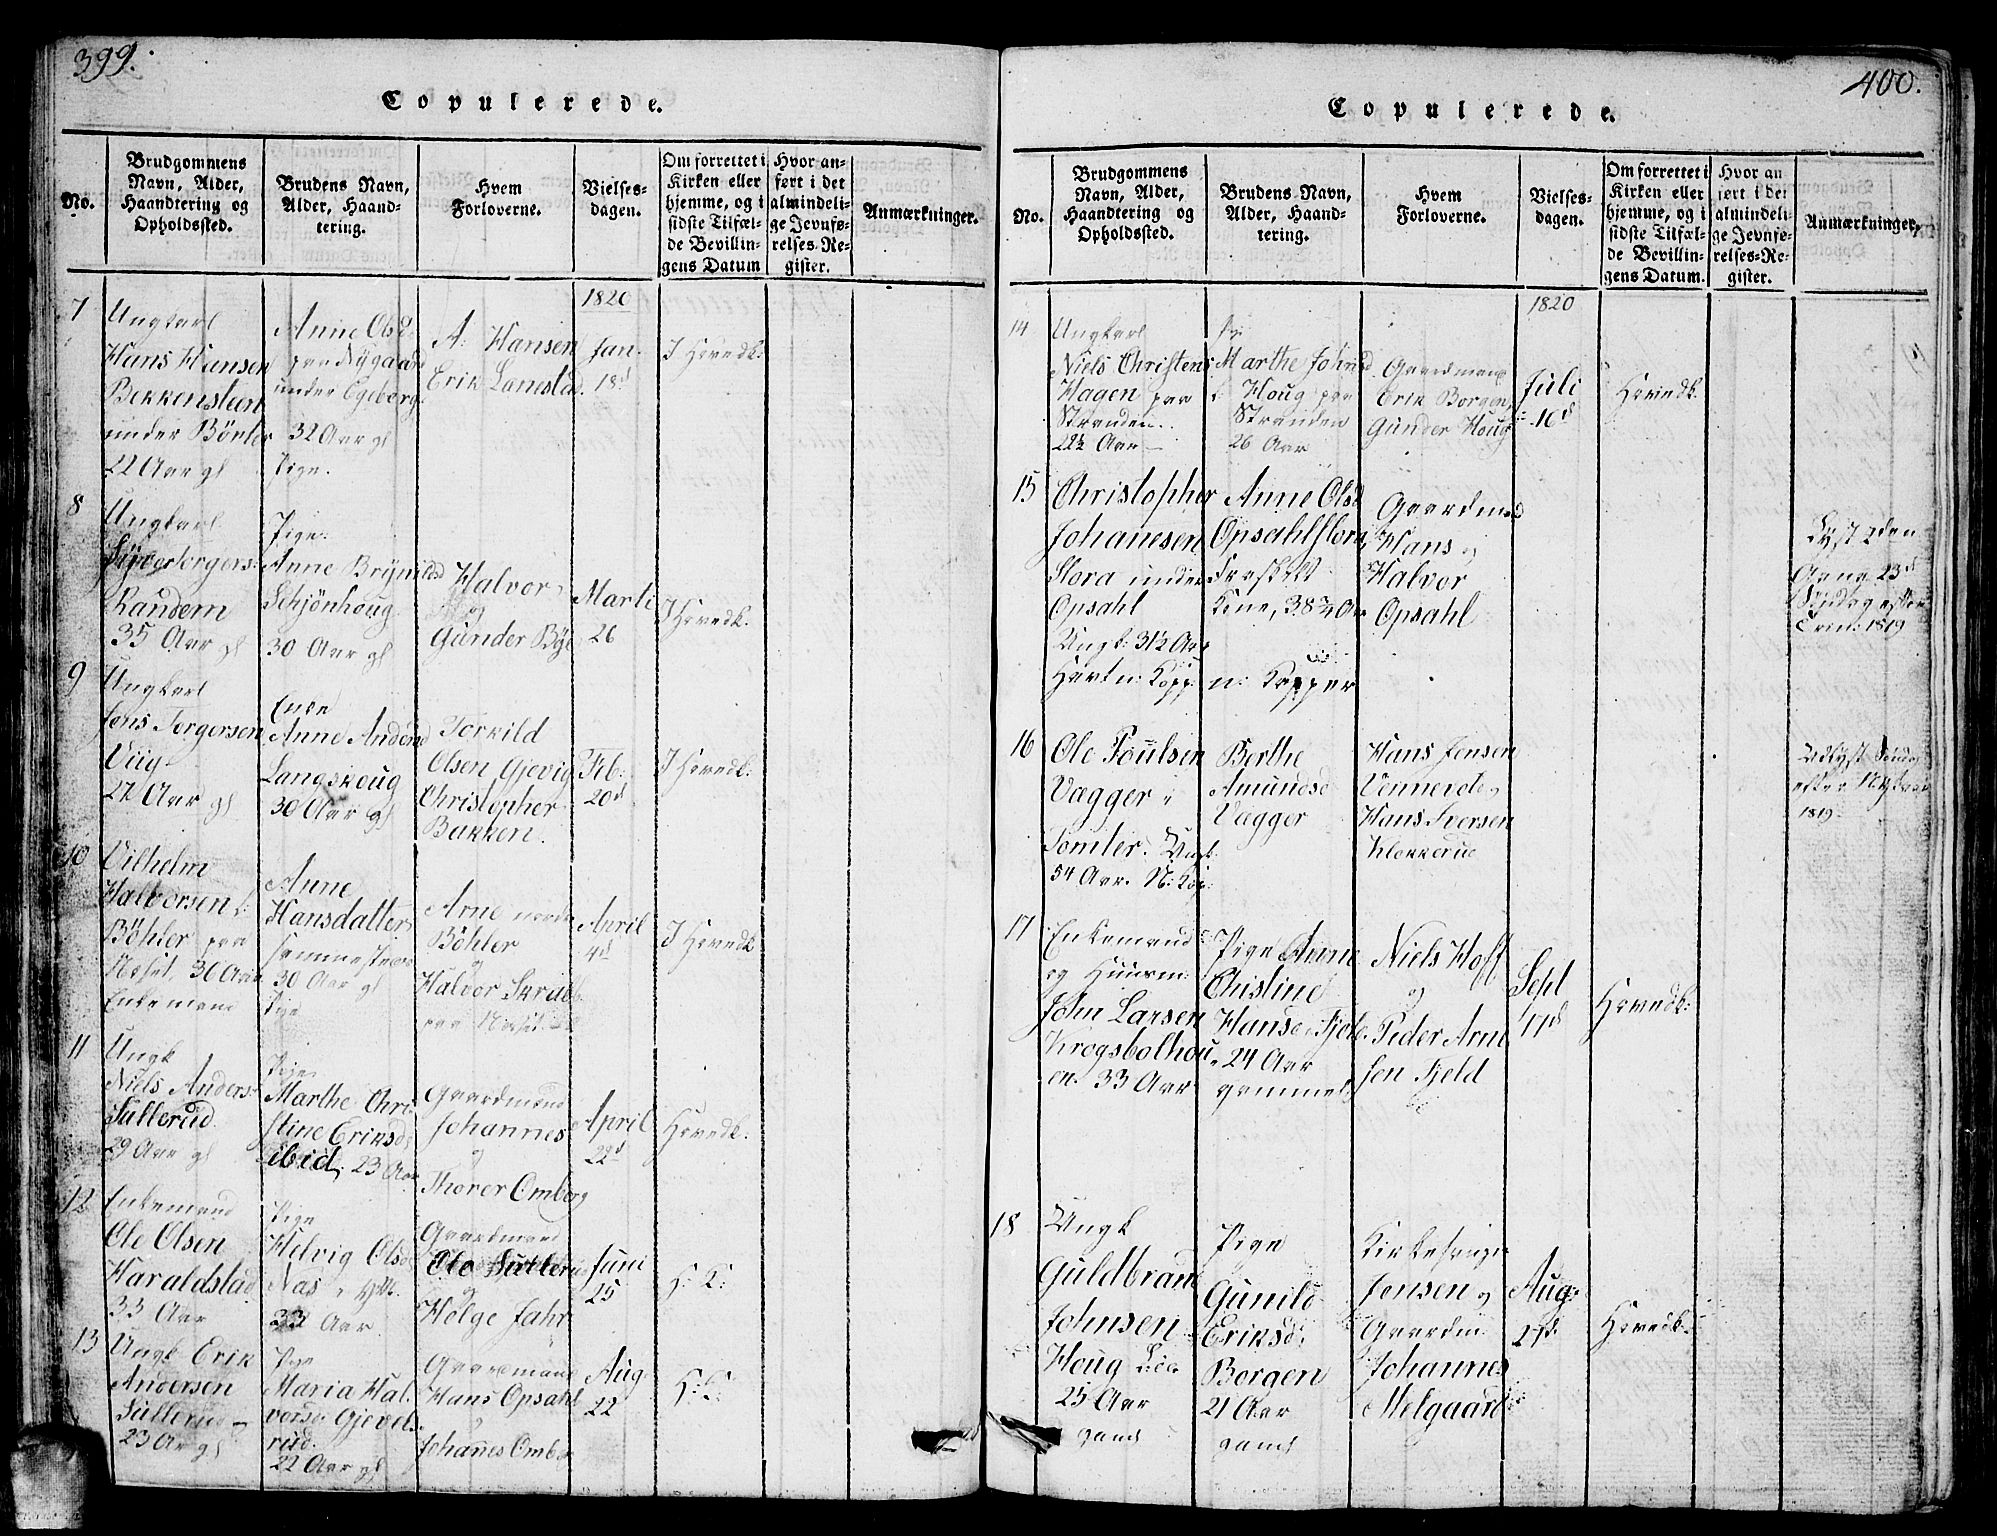 399.
Copulerede.
No.
Brudgommens Navn, Alder, Haandtering og Opholdssted.
Brudens Navn, Alder, Haandtering.
Hvem Forloverne.
Vielsesdagen.
Om forrettet i Kirken eller hjemme, og i sidste Tilfælde Bevillingens Datum
Hvor anført i det almindelige Jevnførelses-Register.
Anmærkninger.
1820
7
Ungkarl
Hans Hansen
Bekkensteen
under Börter
22 Aar gl
Anne Olsd
paa Nygaard
under Egeborg
32 Aar gl
Pige.
A. Hansen
Erik Lanestad
Jan.
18d
I Hovedk:
8
Ungkarl
Randem
35 Aar gl
Pige.
Anne Brynildsd
Schjönhoug
30 Aar gl
Halvor
og
Gunder Bye
Marti
26
I Hovedk.
9
Ungkarl
Jens Torgersen
Viig
27 Aar gl
Enke
Anne Andersd
Langskoug
30 Aar gl
Torkild
Olsen Gjevig
Christopher
Bakken.
Feb:
20d
I Hovedk:
10
Vilhelm
Halvorsen
Böhler paa
Næset, 36 Aar
Enkemand
Anne
Hansdatter
30 Aar gl
Pige
Arne
Böhler
og
Halvor
paa Næset
April
4d
I Hovedk
11
Ungk
Niels Anders:
Sullerud.
29 Aar gl
Pige
Marthe Chri
stine Eriksd:
ibid, 23 Aar
Gaardmænd
Johannes
og
Thorer Omberg
April
22d
Hovedk.
12
Enkemand
Ole Olsen
Haraldstad
33 Aar
Pige
Helvig Olsd
Næs
33 Aar
Gaardmænd
Ole Sullerud
og
Helge Jahr
Juni
25
H: K:
13
Ungk Erik
Andersen
Sullerud
23 Aar gl
Pige
Maria Hal
vorsd. Gjevels
rud.
22 Aar gl
Gaardmænd
Hans Opsahl
og
Johannes Omberg
Aug
22
H: K:
400.
Copulerede.
No.
Brudgommens Navn, Alder, Haandtering og Opholdssted.
Brudens Navn, Alder, Haandtering.
Hvem Forloverne.
Vielsesdagen.
Om forrettet i Kirken eller hjemme, og i sidste Tilfælde Bevillingens Datum.
Hvor anført i det almindelige Jevnførelses-Register.
Anmærkninger.
1820
14
Ungkarl
Niels Christens:
Hagen paa
Stranden.
22½ Aar
Marthe Johnsd
Houg paa
Stranden
26 Aar
Gaardmænd
Erik Borgen,
Gunder Houg
Juli
16d
Hovedk.
15
Christopher
Johanesen
Flora under
Opsahl
Ungk: 31½ Aar
Havt n: Kopp:
Anne Olsd
Opsahlflora
Fraskilt
Kone, 38¾ Aar
n: Kopper
Gaardmænd
Hans og
Halvor
Opsahl
Lyst 2den
Gang 23d
Søndag efter
Trin: 1819
16
Ole Poulsen
Vægger i
Tomter. Ungk.
54 Aar. N: Kop:
Berthe
Amundsd
Vægger
Hans Jensen
Vennerde
Hans Iversen
Klokkerud
Udlyst Søndag
efter Nytaar
1819.
17
Enkemand
og Huusm:
John Larsen
Krogsbølhou
en. 33 Aar
Pige Anne
Chistine
Hansd. Fjeld.
24 Aar
gammel
Niels Hoff
og
Peder Arne
sen Fjeld
Sept
17d
Hovedk:
18
Ungk
Guldbrand
Johnsen
Houg
25 Aar
gaml
Pige
Gunild
Eriksd:
Borgen
21 Aar
gaml
Kirkesanger
Jensen og
Gaardm
Johannes
Melgaard
Aug:
27d.
Hovedk: